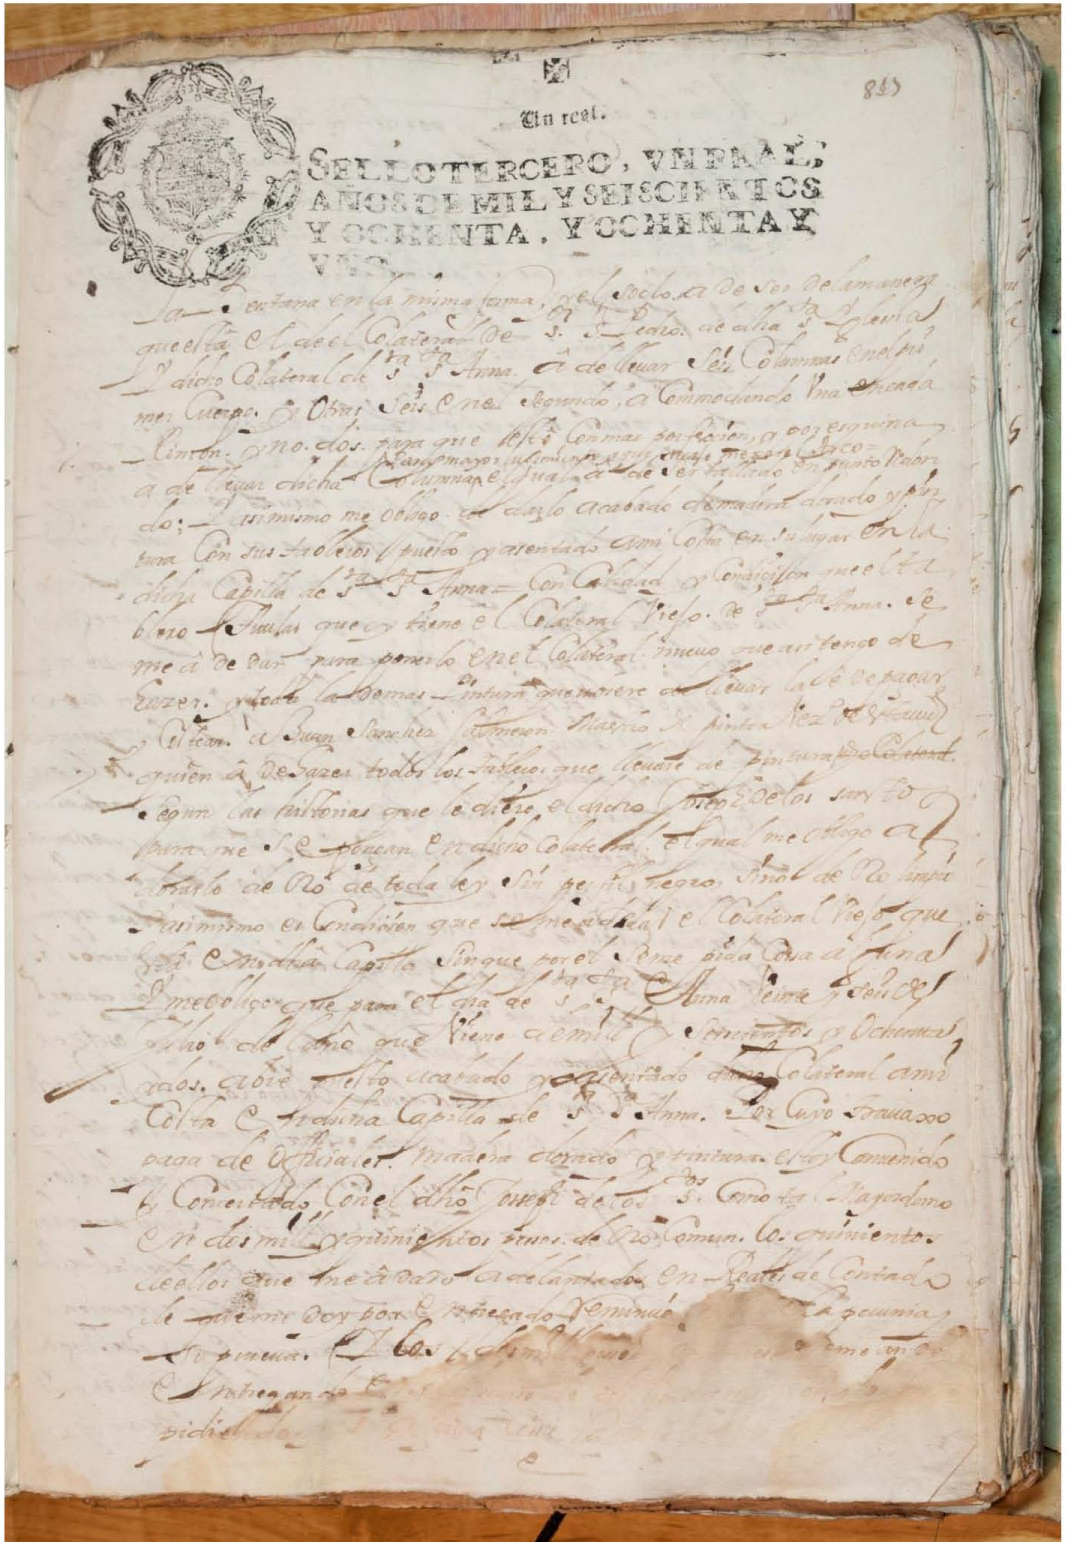 813
Un real.
SELLO TERCERO, VN REAL,
AÑOS DE MIL Y SEISCIENTOS
Y OCHENTA, Y OCHENTA Y
VNO.
la Ventana en la misma forma, y el soclo a de ser de la manera
que està el de el Colateral de Sr. Sn. Pedro. de dha Sta. Yglesia
Y dicho Colateral de Sra. Sta. Anna. â de llevar Seis Columnas en el pri
mer Cuerpo. y Otras Seis en el Segundo, acommodando Vna en cada
Rincon. y no. dos. para que estè con mas perfeccion, y por esquina
para mayor lucimiento y que encaje mejor el Arco =
a de llevar dicha Columna, el qual a de ser
do; Y asimismo me obligo a darlo acabado de madera dorado y pin
tura Con sus tableros puesto y asentado a mi Costa en su lugar en la
dicha Capilla de Sra. Sta. Anna = Con Calidad y Condicion que el ta
blero que oy tiene el Colateral Viejo. de Sra. Sta. Anna. Se
me â de dar para ponerlo en el Colateral nuevo que asi tengo de
hazer. y toda la demas Pintura que hubiere de llevar la è de pagar
y Costear. a Juan Sanchez Salmeron Maestro de pintor Vezo. de esta Ciud
quien â de hazer todos los tableros que llevare de pintura dho Colateral.
Segun las historias que le diere, el dicho Joseph de los Santos
para que Se pongan en dicho Colateral. el qual me obligo a
dorarlo de Oro de toda ley sin perfil negro, sino de Oro limpio
Y asimismo es Condicion que se me a de dar el Colateral Viejo que
està en dha Capilla Sin que por el Se me pida Cossa alguna
Y me obligo que para el dia de Sra. Sta. Anna Veinte y seis de
Julio de l año que Viene de mill y Seiscientos y Ochenta
y dos. a de puesto acabado y asentado dicho Colateral a mi
Costa en dicha Capilla de Sra. Sta. Anna. Por Cuyo travaxo
paga de Offiziales. madera dorado y pintura. estoy Convenido
y Concertado Con el dho Joseph de los Stos. Como tal Mayordomo
en dos mill y quinientos pesos de Oro Comun. los quinientos
de ellos que me â dado adelantados en Reales de Contado
de que me doy por entregado y renunció la pecunia
Su prueva. Y los dos mill
entregando
pidiendo